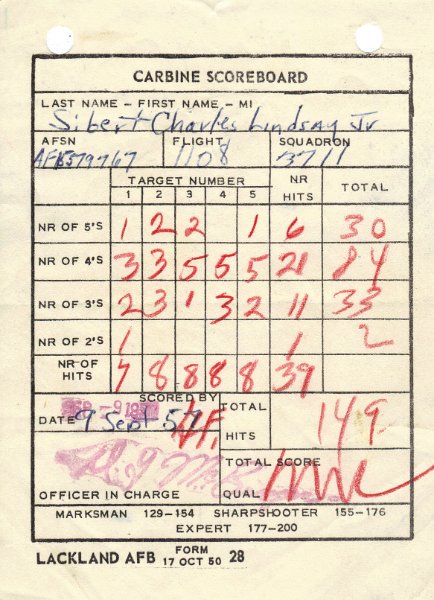 CARBINE SCOREBOARD
LAST NAME - FIRST NAME - MI
Sibert Charles Lindsay Jr
AFSN FLIGHT SQUADRON
1108 3711
TARGET NUMBER NR HITS TOTAL
1 2 3 4 5
NR OF 5'S 1 2 2 1 6 30
NR OF 4'S 3 3 5 5 5 21 84
NR OF 3'S 2 3 1 3 2 11 33
NR OF 2'S 1 1 2
NR OF HITS 7 8 8 8 8 39
SCORED BY
DATE 9 Sept 57
TOTAL HITS 149
TOTAL SCORE
OFFICER IN CHARGE QUAL
MARKSMAN 129-154 SHARPSHOOTER 155-176
EXPERT 177-200
LACKLAND AFB FORM 17 OCT 50 28